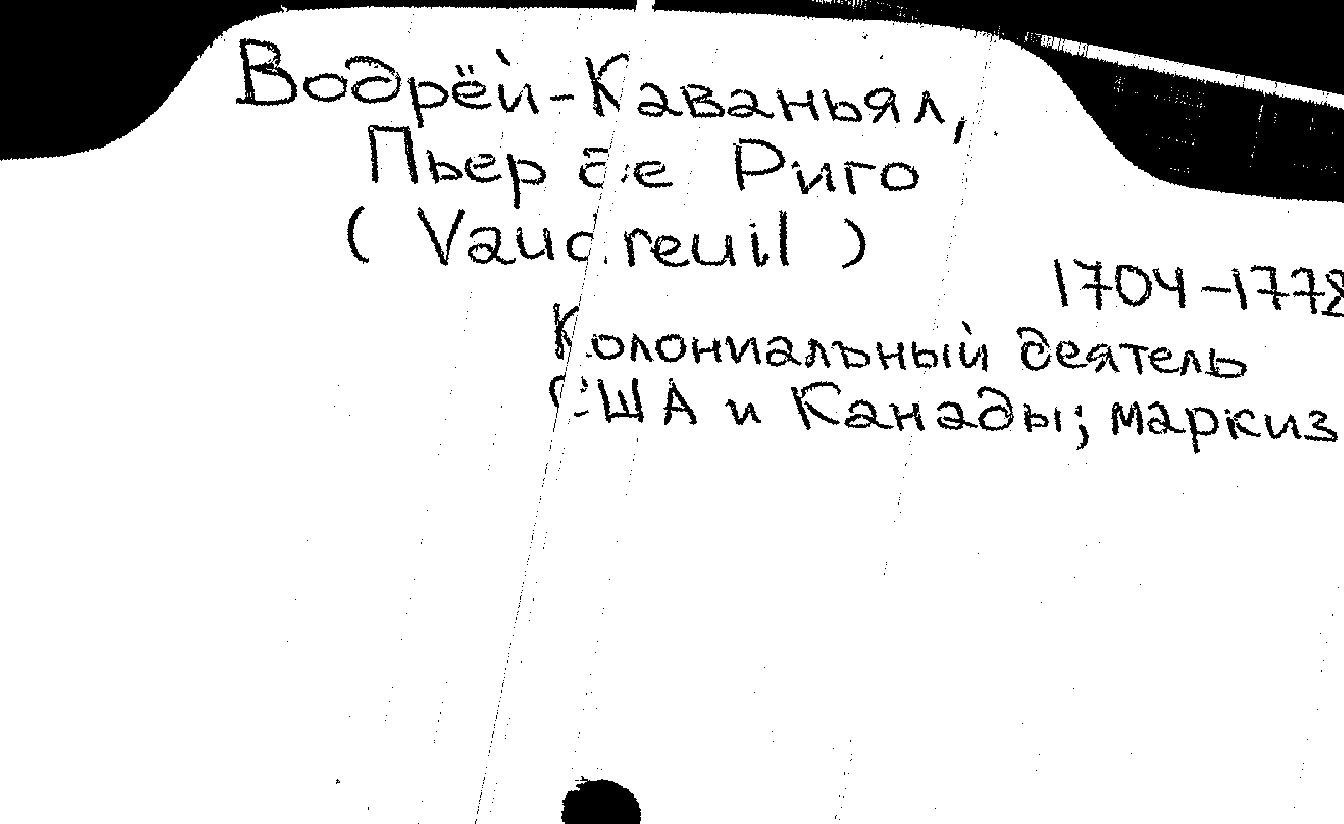 Водрёй-Каваньял,
Пьер де Риго
( Vaudreuil )
1704-1778
Колониальный деятель
США и Канады; маркиз